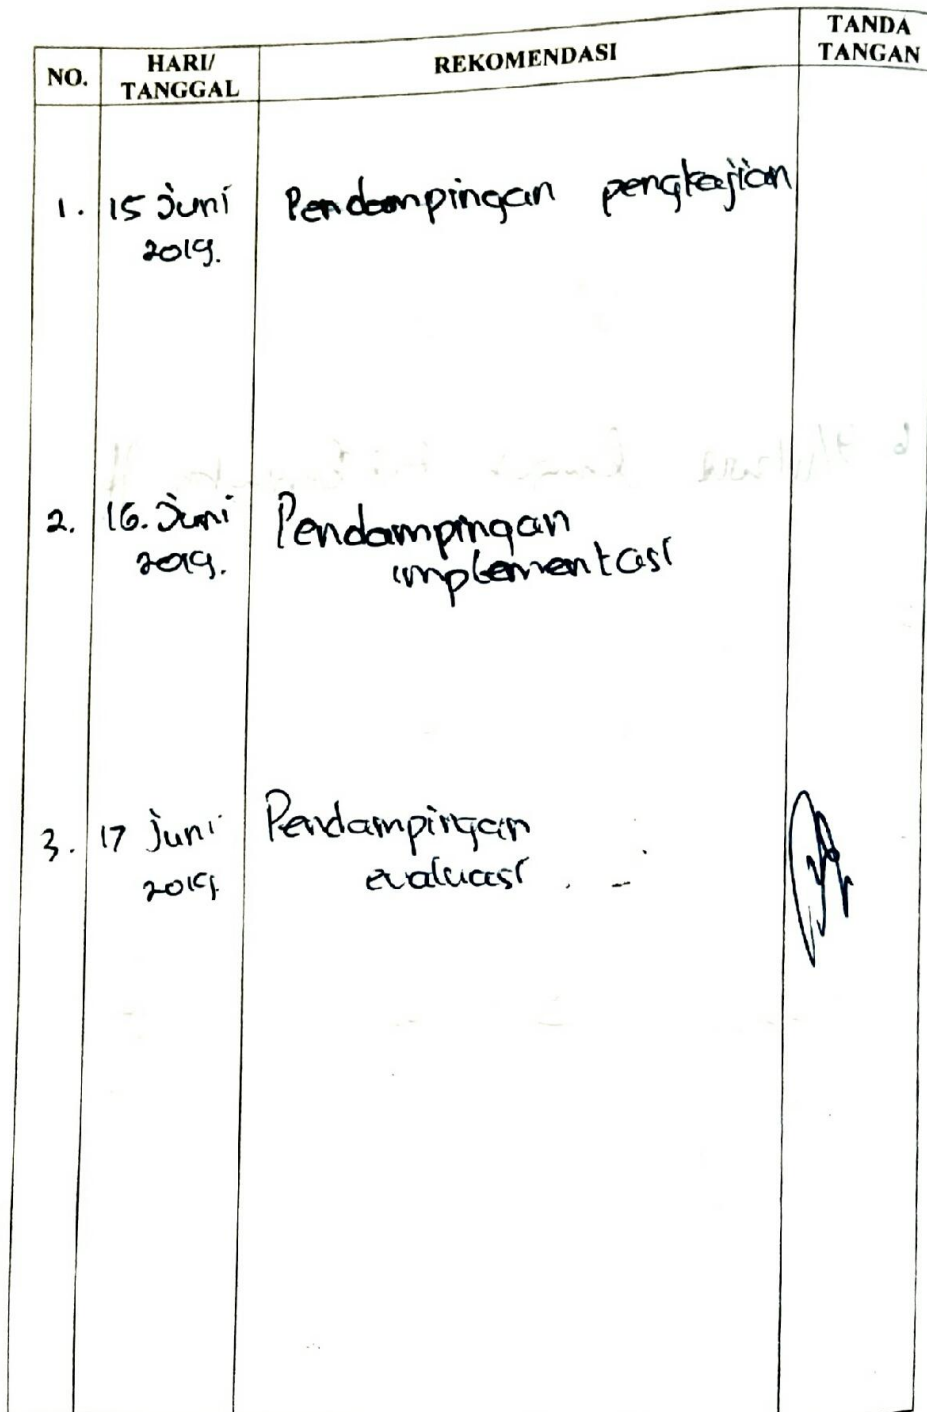 NO. HARI/ TANGGAL REKOMENDASI TANDA TANGAN
1. 15 Juni Pendampingan pengkajian
2019.
2. 16. Juni Pendampingan
2019. implementasi
3. 17 Juni Pendampingan
2019 evaluasi